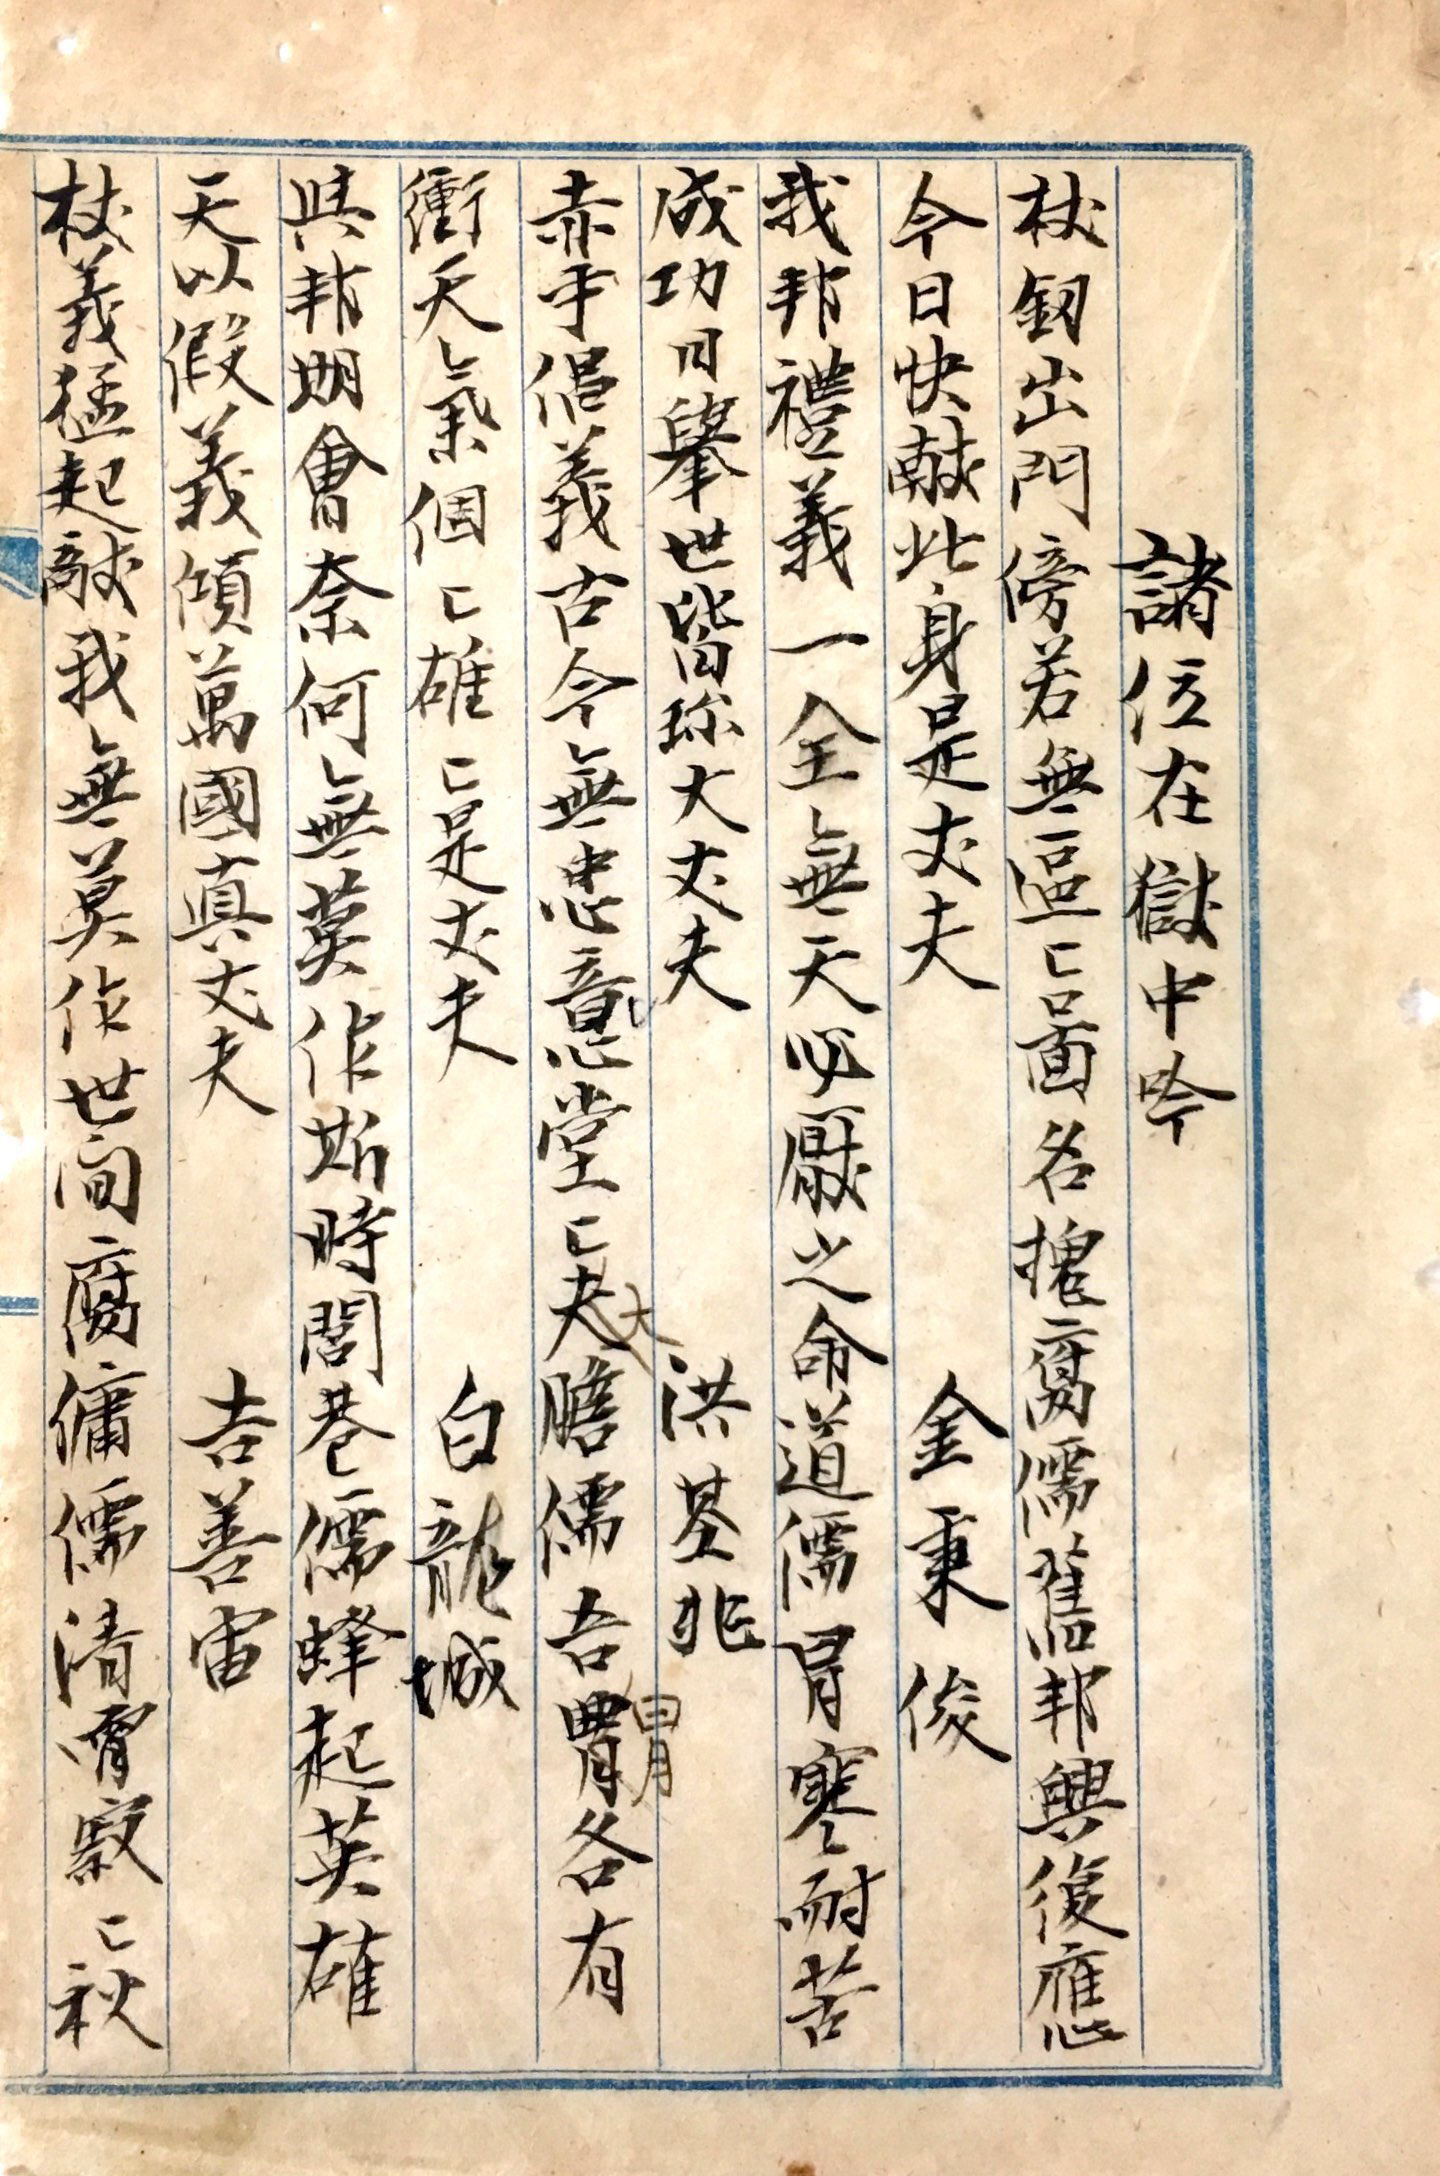 諸位在獄中吟
杖釰出門傍若無區〻面名掽腐儒舊邦興復應
今日快献此身是丈夫　金秉俊
我邦禮義一全無天必厭之命道儒胃寒耐苦
成功日擧世皆珎大丈夫　洪基兆
赤手倡義古今無忠意堂〻夫大膽儒吾胃胄各有
衝天氣個〻雄〻是丈夫　白龍城
興邦期會奈何無莫作斯時閭巷儒蜂起英雄
天以假義傾萬國真丈夫　吉善宙
杖義猛起敵我無莫作世間腐傭儒清宵寂〻秋